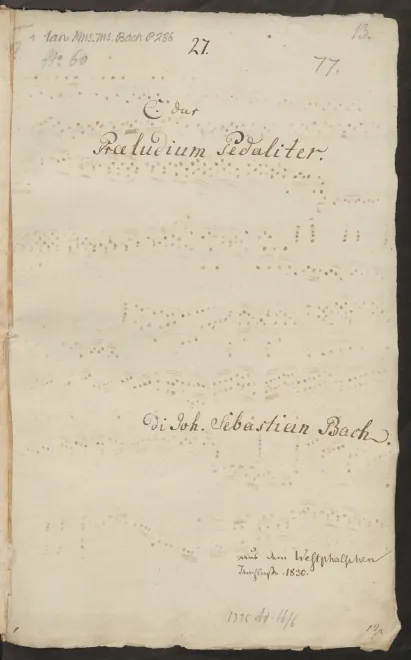 13.
Mus. ms. Bach P 286
27.
No 60
77.
C. dur
Præludium Pedaliter.
di Joh. Sebastian Bach.
aus dem Westphalschen
Nachlasse 1830.